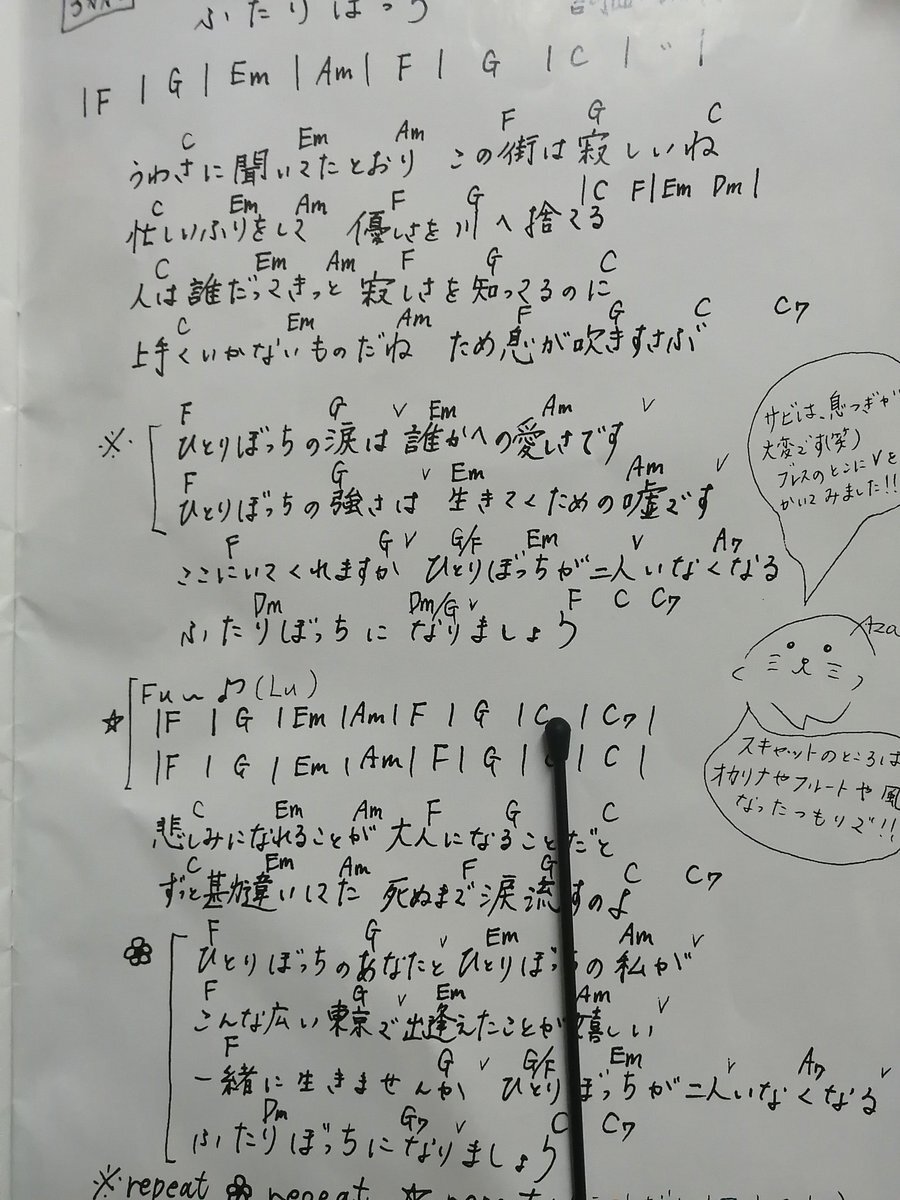 ふたりぼっち
|F | G | Em | Am | F | G | C | 〃 |
C Em Am F G C
うわさに聞いてたとおり この街は寂しいね
C Em Am F G |C F|Em Dm|
忙しいふりをして 優しさを川へ捨てる
C Em Am F G C
人は誰だってきっと 寂しさを知ってるのに
C Em Am F G C C7
上手くいかないものだね ため息が吹きすさぶ
F G V Em Am V
※ ひとりぼっちの涙は 誰かへの愛しさです
F G V Em Am V
ひとりぼっちの強さは 生きてくための嘘です
F G V G/F Em V A7
ここにいてくれますか ひとりぼっちが二人いなくなる
Dm Dm/G V F C C7
ふたりぼっちになりましょう
サビは、息つぎが
大変です(笑)
ブレスのとこにVを
かいてみました!!
Aza
☆ Fu〜♫(Lu)
|F | G | Em | Am | F | G | C | C7 |
|F | G | Em | Am | F | G | | C |
スキャットのところは
オカリナやフルートや風
なったつもりで!!
C Em Am F G C
悲しみになれることが 大人になることだと
C Em Am F G C C7
ずっと勘違いしてた 死ぬまで涙流すのよ
F G V Em Am V
ひとりぼっちのあなたと ひとりぼっちの私が
F G V Em Am V
こんな広い東京で出逢えたことが嬉しい
F G V G/F Em V A7 V
一緒に生きませんか ひとりぼっちが二人いなくなる
Dm G7 V C C7
ふたりぼっちになりましょう
※ repeat repeat ☆